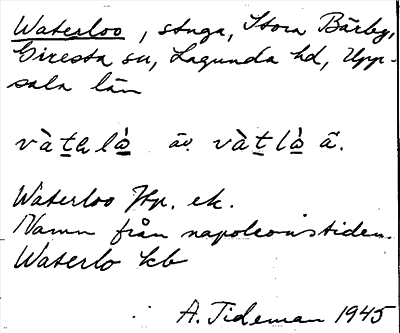 Waterloo, stuga, Stora Bärby,
Giresta sn, Lagunda hd, Upp-
sala län
Waterloo Hp. ek.
Namn från napoleonstiden.
Waterlo kb
A. Tideman 1945